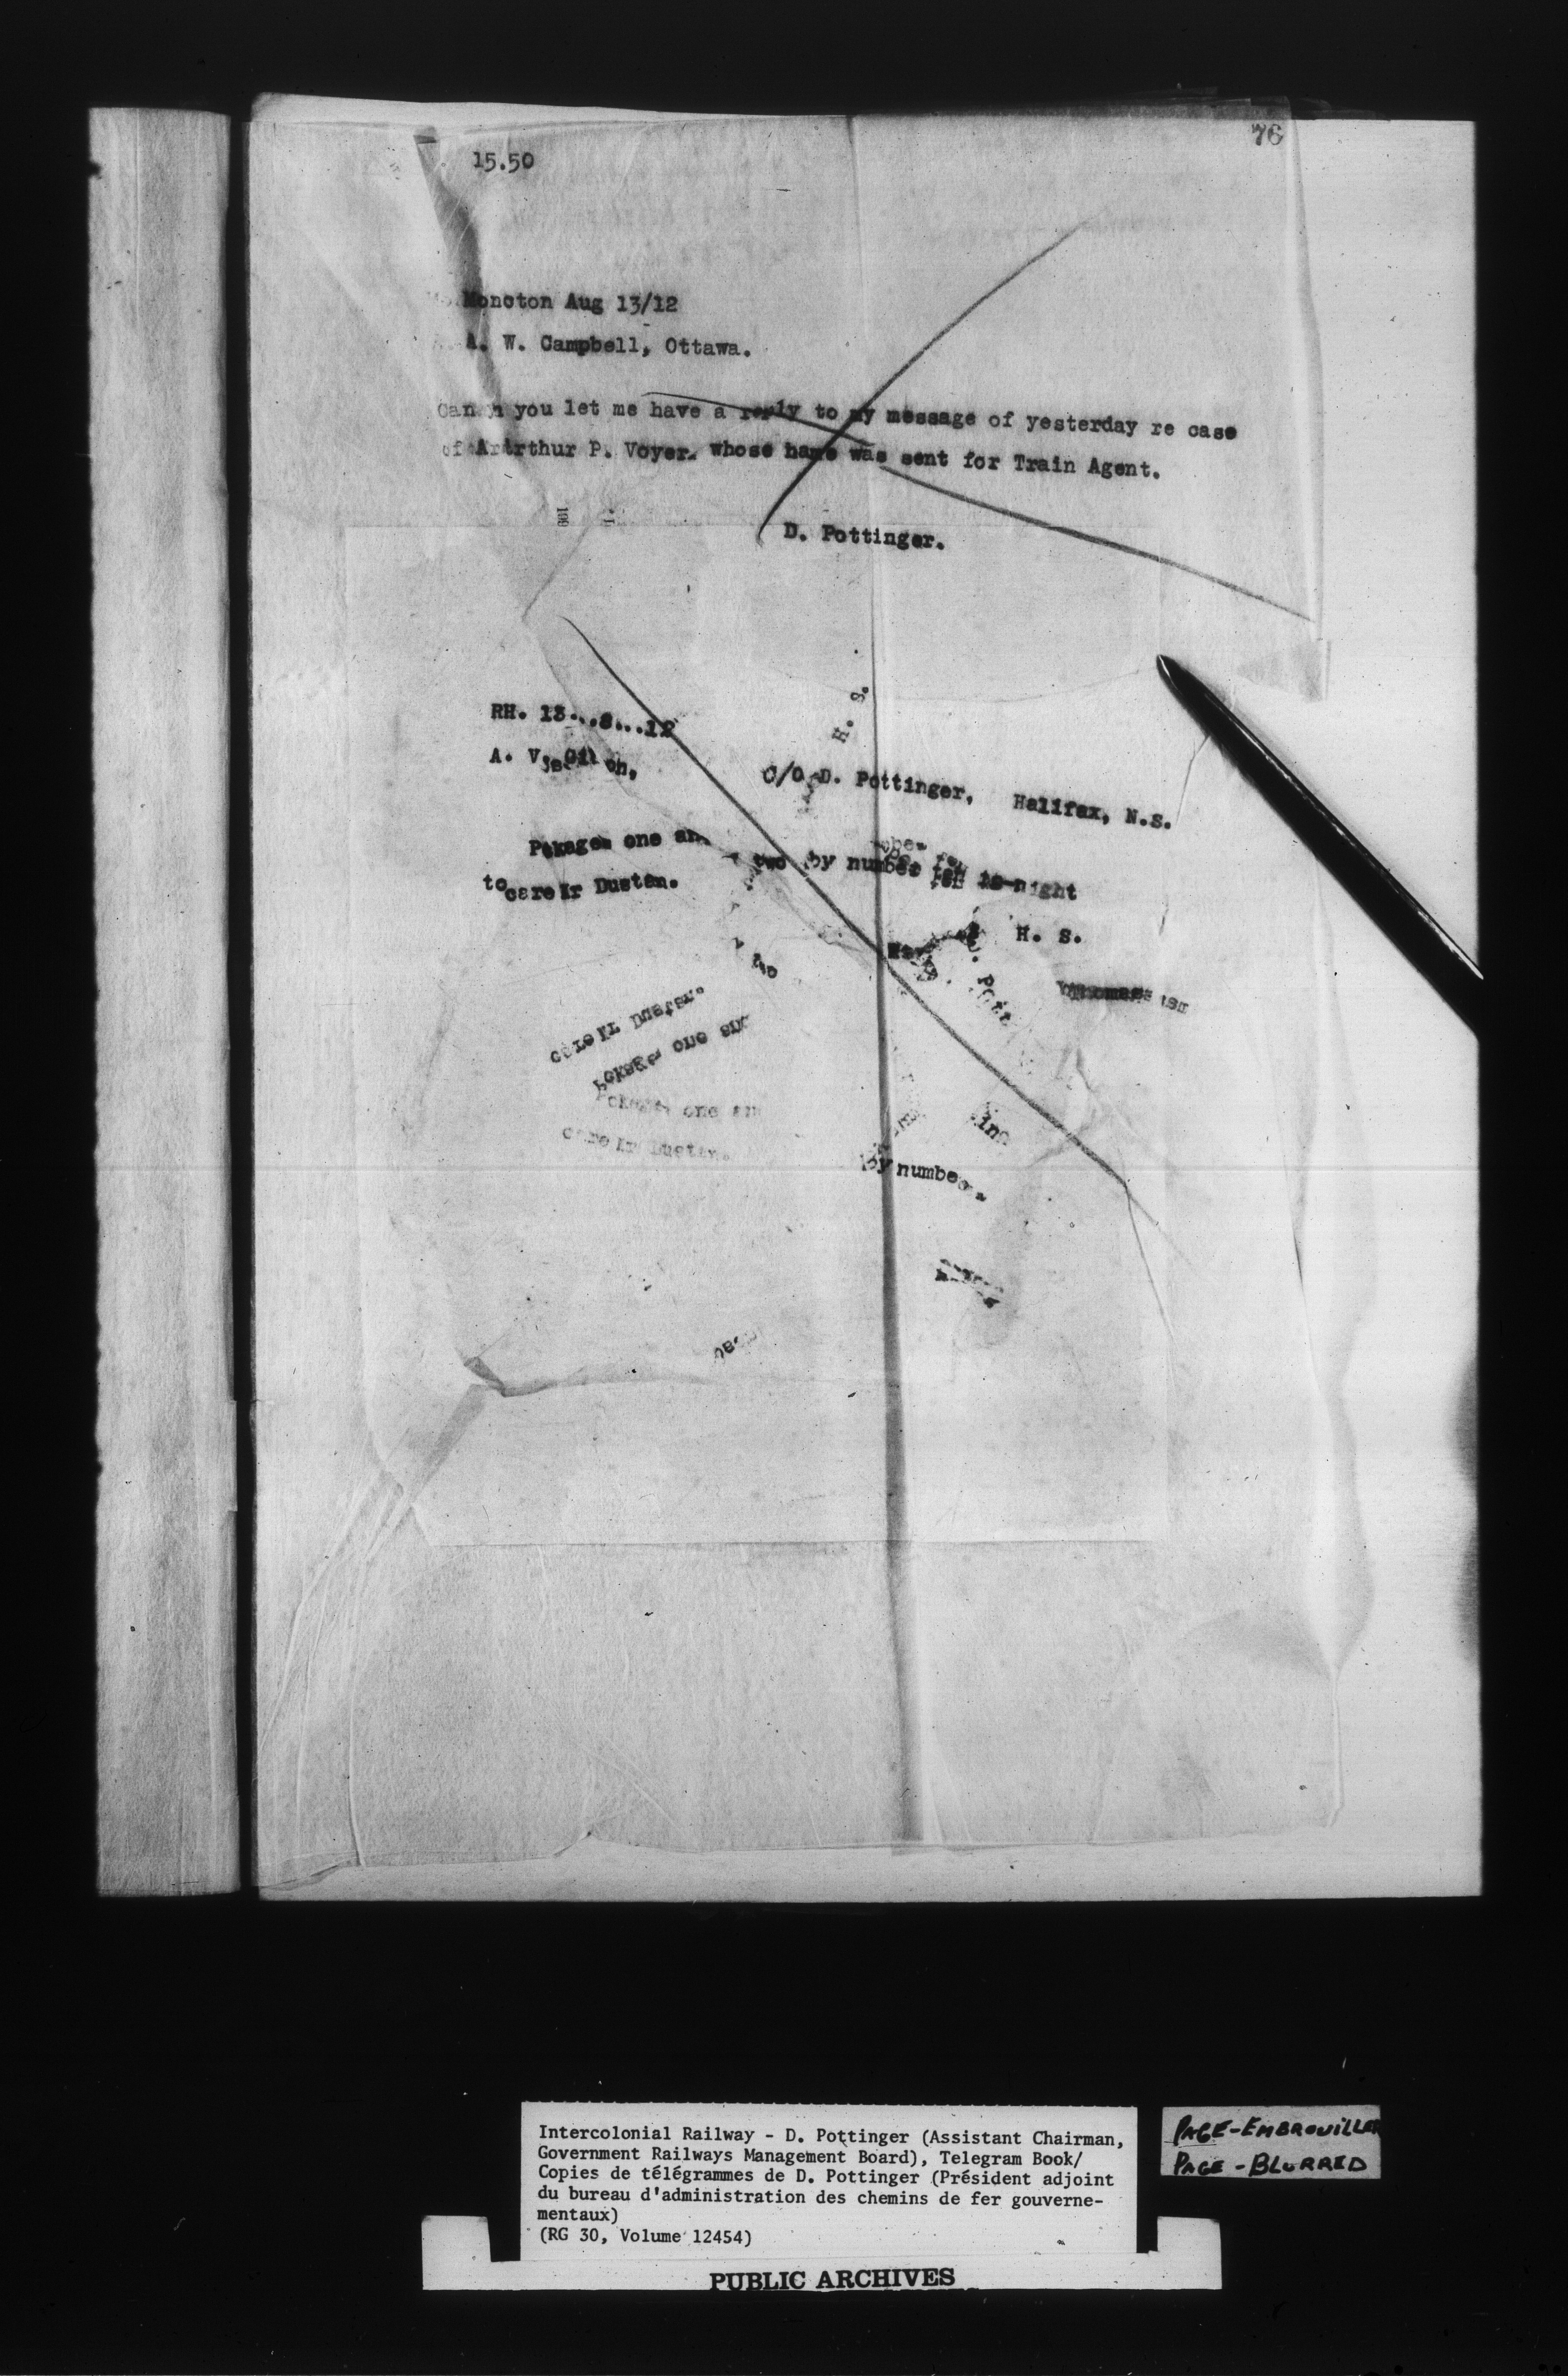 76
15.50
Moncton Aug 13/12
A. W. Campbell, Ottawa.
Can you let me have a reply to my message of yesterday re case
of Arthur P. Voyer whose name was sent for Train Agent.
D. Pottinger.
H. S.
RH. 13...8...12
A. V.
C/O D. Pottinger, Halifax, N.S.
Pakages one an two by number ten to-night
to care Mr Dustan.
H. S.
care Mr Dustan.
Pokages one an
Pokages one an
care Mr Dustan.
by number
Intercolonial Railway - D. Pottinger (Assistant Chairman,
Government Railways Management Board), Telegram Book/
Copies de télégrammes de D. Pottinger (Président adjoint
du bureau d'administration des chemins de fer gouverne-
mentaux)
(RG 30, Volume 12454)
PAGE-EMBROUILLER
PAGE-BLURRED
PUBLIC ARCHIVES